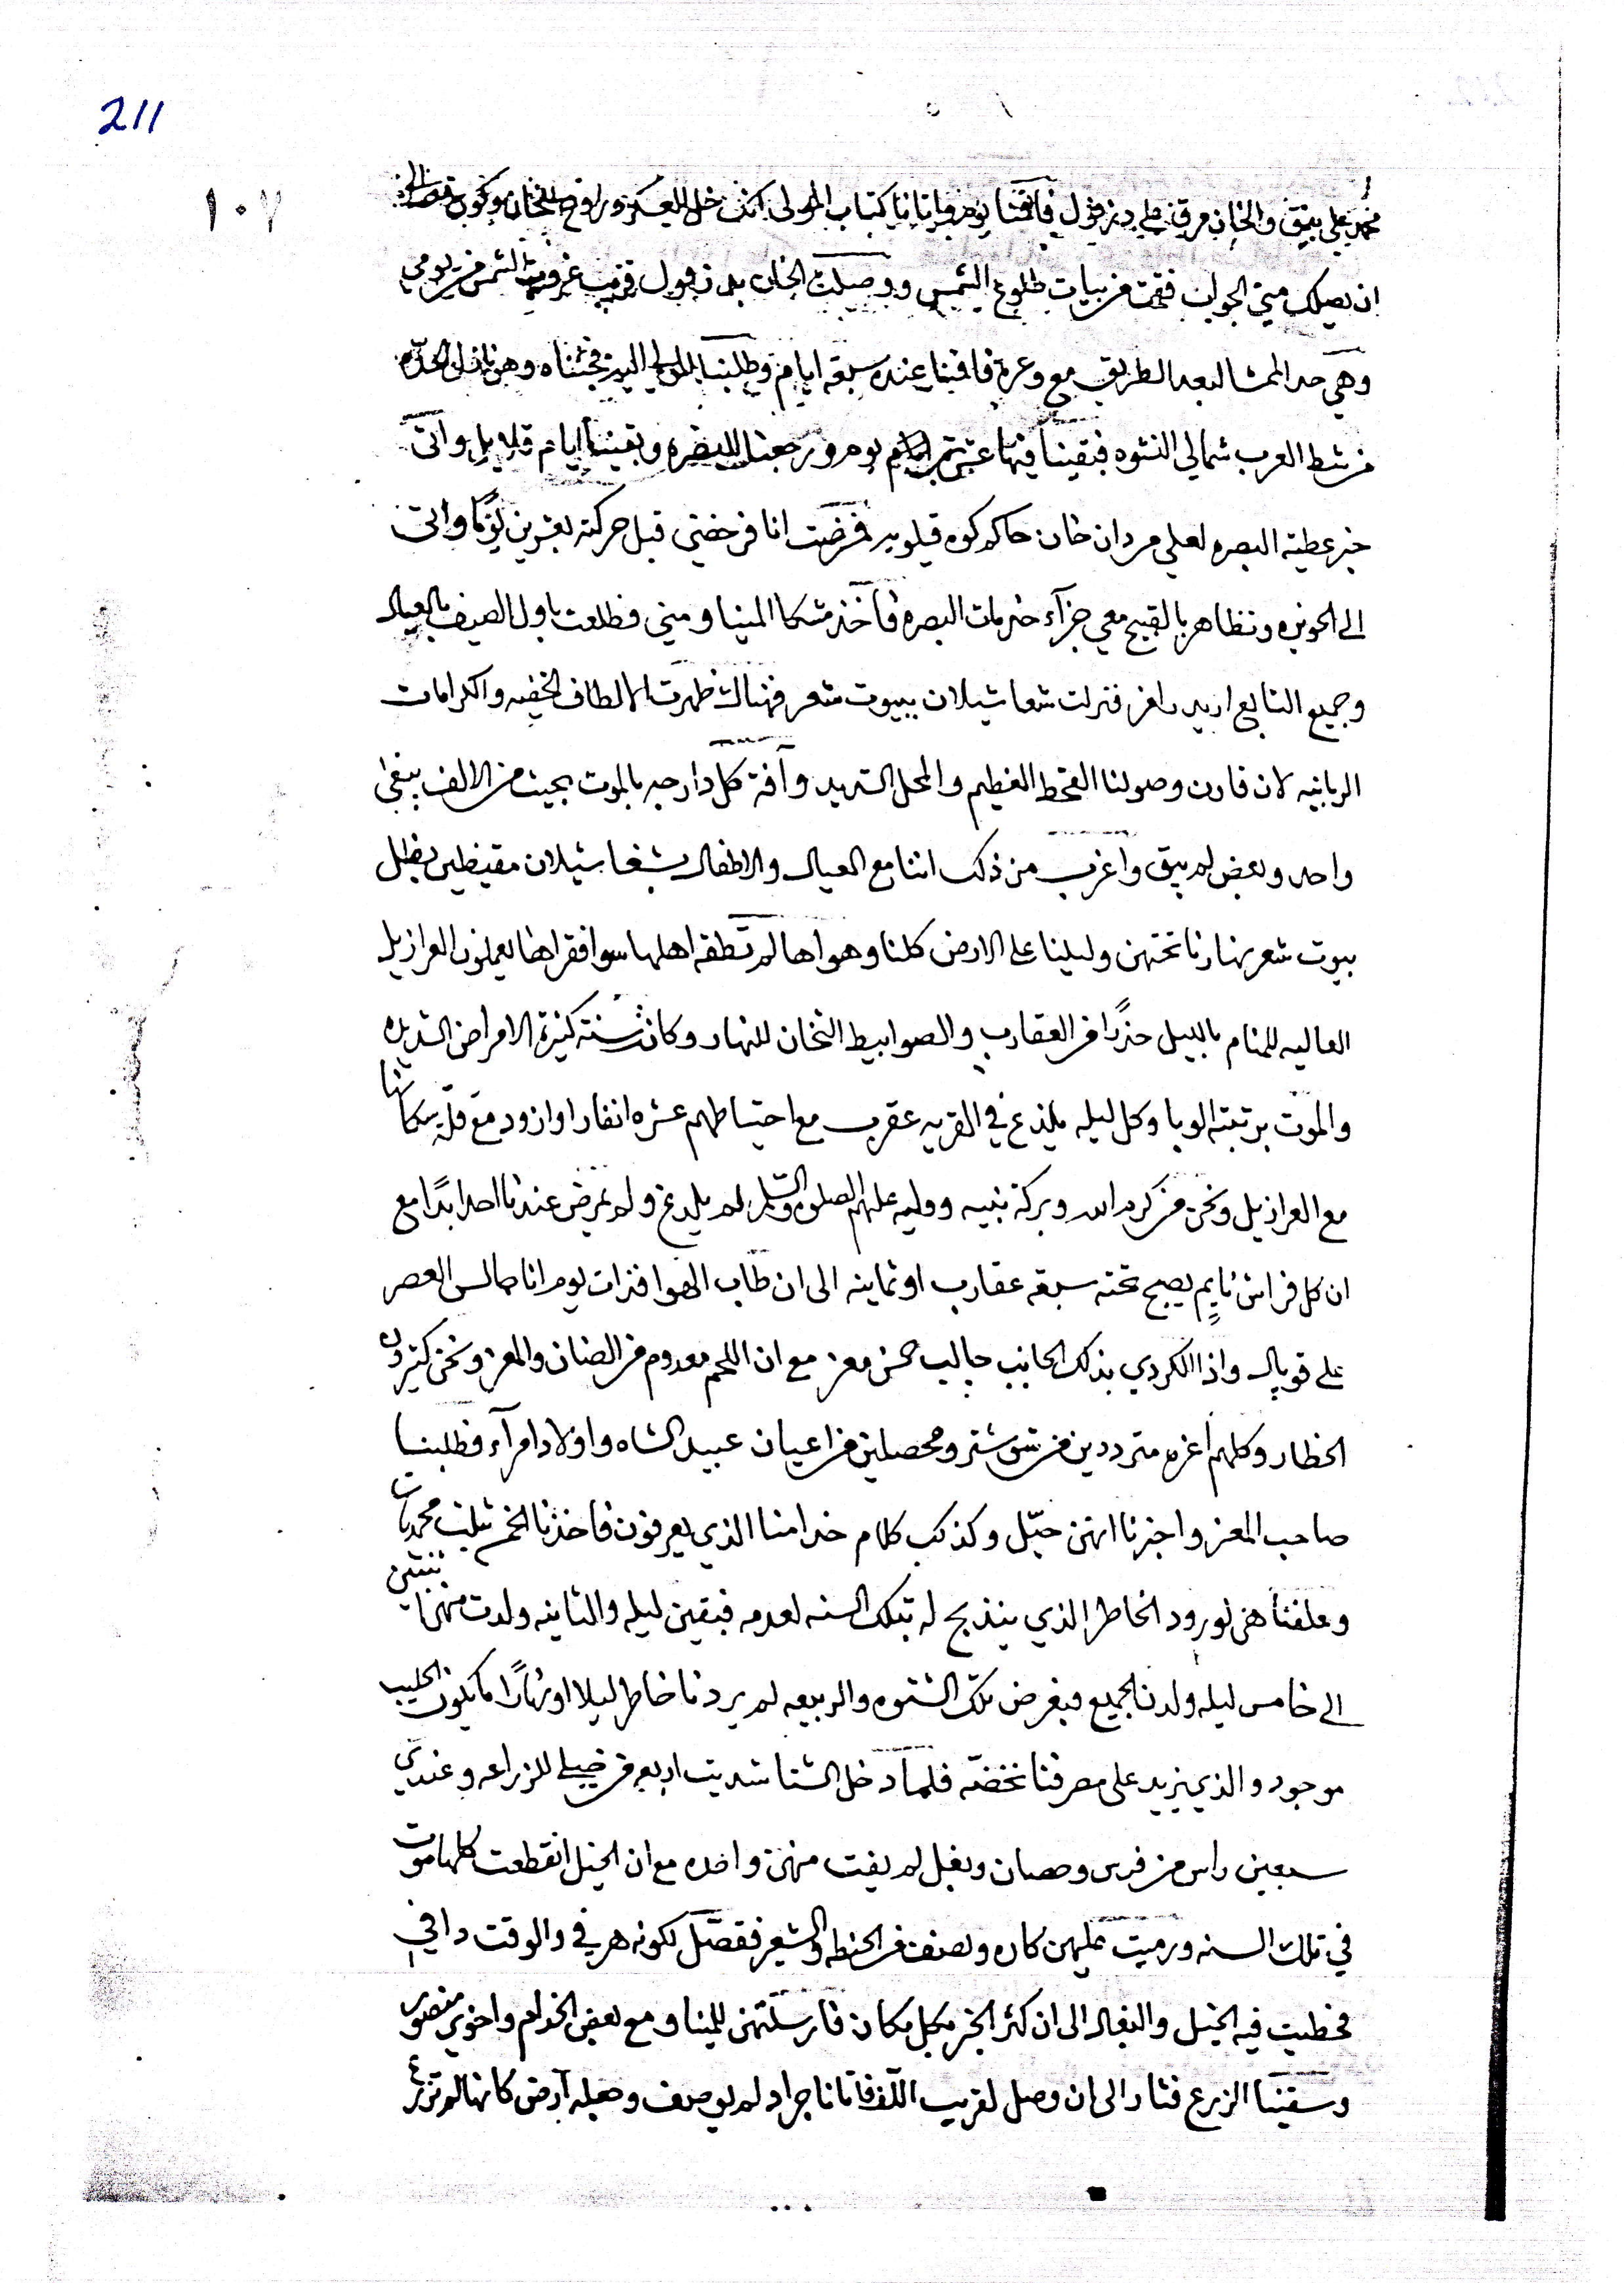 211
١٠٧
محمد علي بيق والخان مرقني على دزفول فاقمنا يوم واتانا كتاب المولى انت خل العسكر وراوح للخان
ان يصلك مني الجواب فقمت من بيات طلوع الشمس ووصيلت الخان بدزفول قريب غروب الشمس من يومي
وهي حد الممشا لبعد الطريق مع وعره فاقمنا عنده سبعة ايام وطلبنا المولى اليه فجئناه وهو نازل
من شط العرب شمالي النشوه فبقينا فيها عشرة ايام ورجعنا للبصره وبقينا ايام قلايل واتى
خبر عطية البصره لعلي مردان خان حاكم كوه قيلويه فمرضت انا فرخصني قبل حركته بعشرين يومًا واتى
الى الحويزه وتظاهر بالقبح معي جزآء خدمات البصره فأخذ مشكا المينا ومني فطلعت باول الصيف بالعيال
وجميع التابع اريد رامز فنزلت شعا شيلان ببيوت شعر فهناك ظهرت الالطاف الخفيه والكرامات
الربانيه لان قارن وصولنا القحط العظيم والمحل الشديد وآفة كل دارجه بالموت بحيث من الالف يبقى
واحد وبعض لم يبق واغرب من ذلك اننا مع العيال والاطفال بشعا شيلان مقيضين بظل
بيوت شعر نهارنا تحتهن وليلنا على الارض كلنا وهواها لم تطقه اهلها سوا فقراها يعملون العرازيل
العاليه للمنام بالليل حذرًا من العقارب والصوابيط الثخان للنهار وكانت سنة كثيرة الامراض الشديده
والموت برتبة الوبا وكل ليله يلذع في القريه عقرب مع احتياطهم عشره انفار او ازود مع قلة سكانها
مع العرازيل ونحن من كرم الله وبركة نبيه ووليه عليهم الصلوة والسلم لم يلدغ ولم يمرض عندنا احد ابدًا مع
ان كل فراش نايم يصبح تحته سبعة عقارب او ثمانيه الى ان طاب الهوا فذات يوم انا جالس العصر
على قوپال واذا الكردي بذلك الجانب جالب خمس معز مع ان اللحم معدوم من الضان والمعز ونحن كثيرون
الخطار وكلهم اعزه مترددين من شوشتر ومحصلين من اعيان عبيد الشاه واولاد امرآء فطلبنا
صاحب المعز واخبرنا انهن حيّل وكذلك كلام خدامنا الذي يعرفون فاخذنا الخمس بثلث محمديات
وعلفناهن لورود الخاطر الذي ينذبح له بتلك السنه لعدمه فبقين ليله والثانيه ولدت منهن ثنتين
الى خامس ليله ولدن الجميع فبغرض تلك الشتوه والربيعه لم يردنا خاطر ليلا او نهارًا ما يكون الحليب
موجود والذي يزيد على مصرفنا نخضّه فلما دخل الشتا شديت اربعه للزراعه وعندي
سبعين راس من فرس وحصان وبغل لم يفت منهن واحده مع ان الخيل انقطعت كلها موت
في تلك السنه ورميت عليهن كاره ونصف من الحنطه والشعير فقصّل لكونه هرفي والوقت دافي
فحطيت فيه الخيل والبغال الى ان كثر الخير بكل مكان فارسلتهن للميناو مع بعض الخدام واخوي منصور
وسقينا الزرع فثار الى ان وصل لقريب اللاف فاتانا جراد لم يوصف وجعله آرض كانها لم تزرع